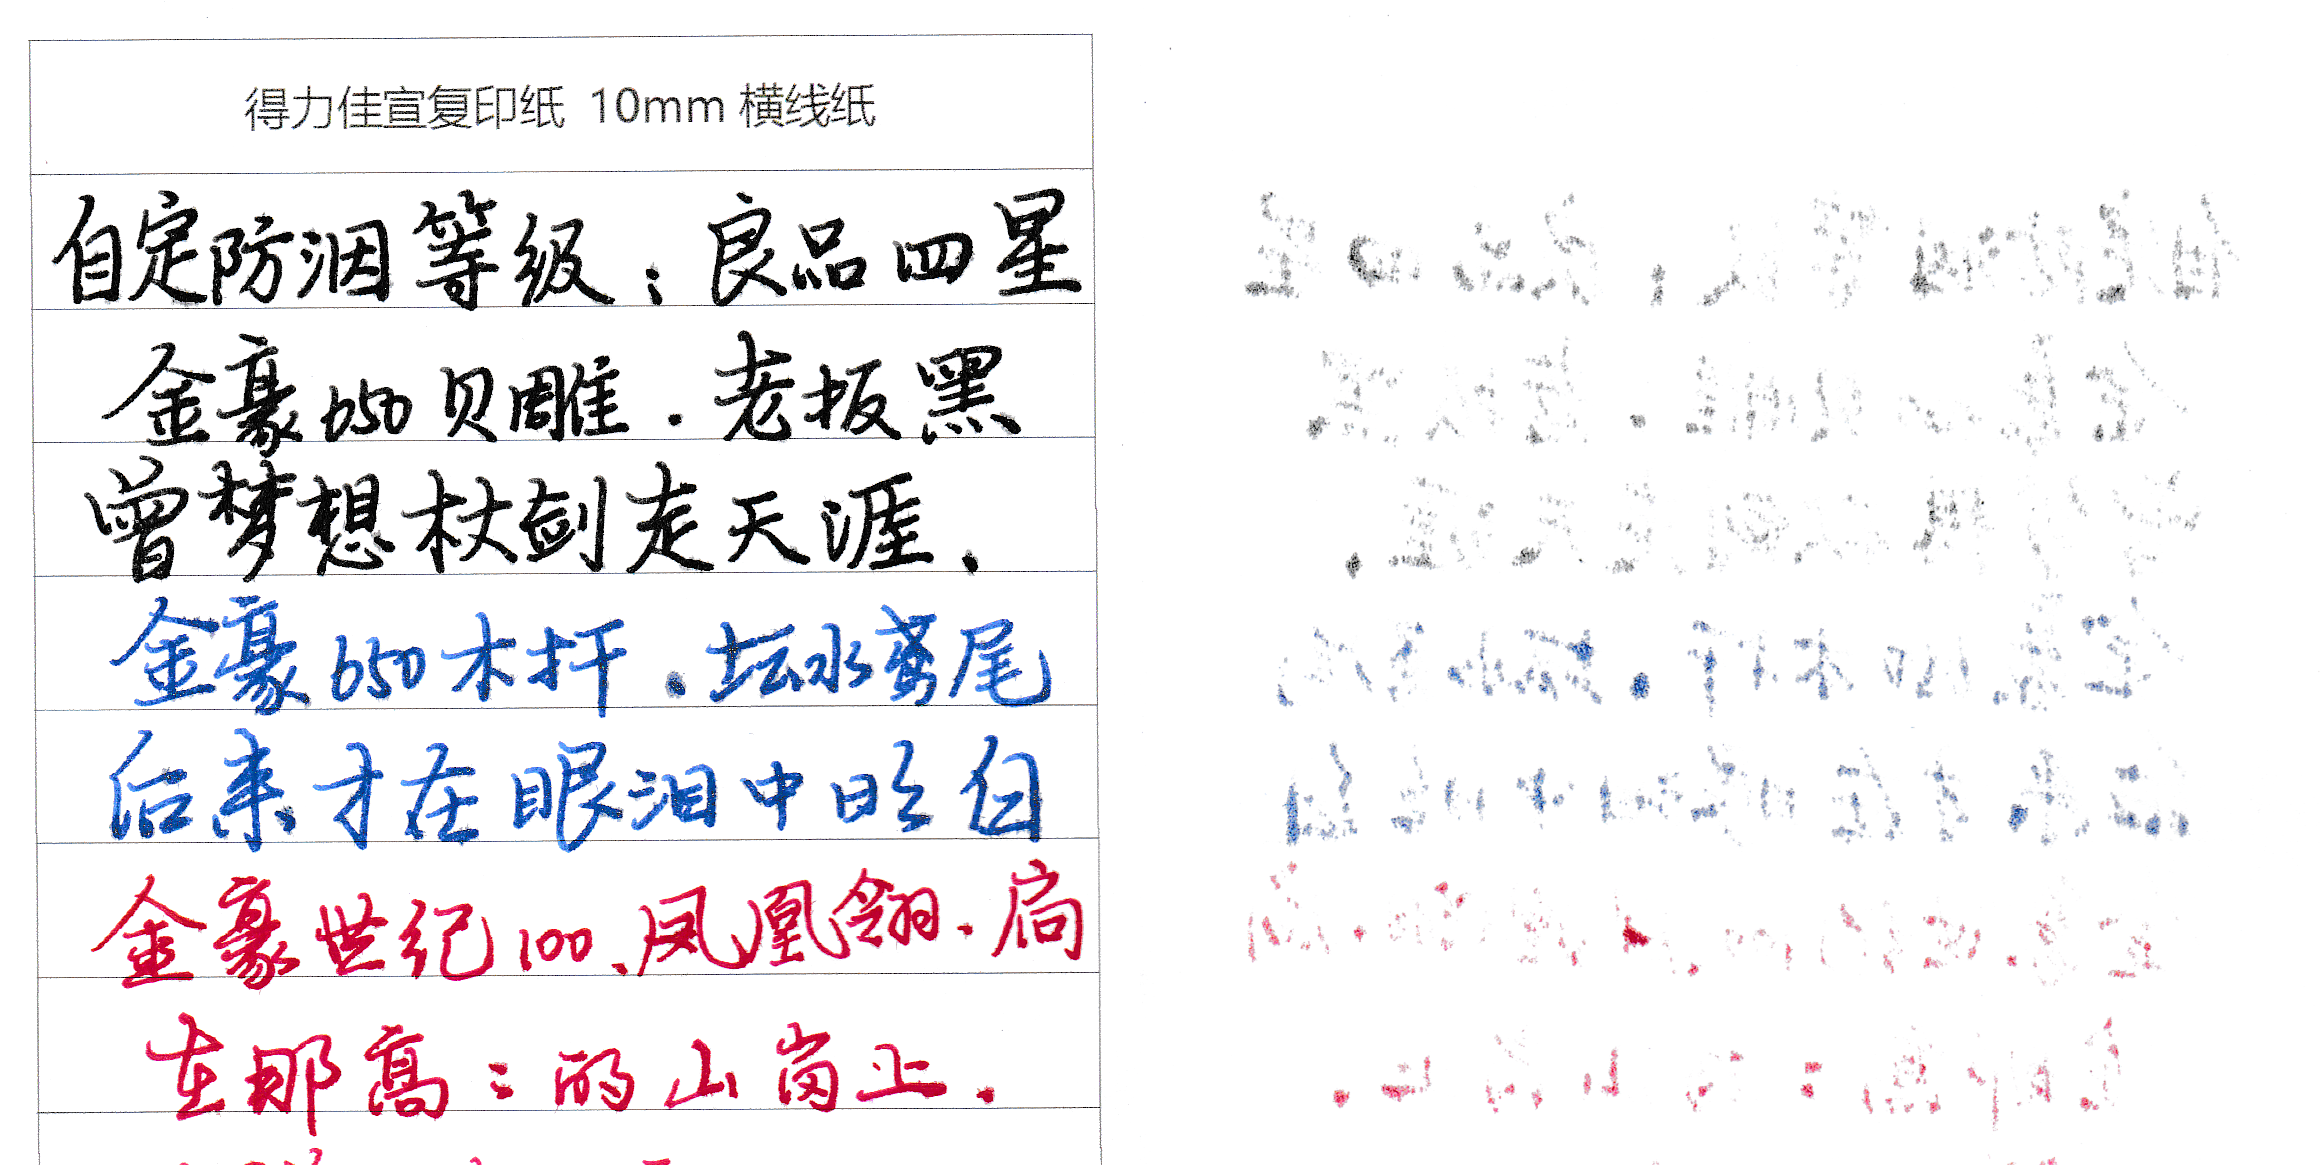 得力佳宣复印纸 10mm 横线纸
自定防洇等级：良品四星
金豪650贝雕.老板黑
曾梦想杖剑走天涯.
金豪650木杆.坛水鸢尾
后来才在眼泪中明白
金豪世纪100、凤凰翎.扃
在那高:的山岗上.